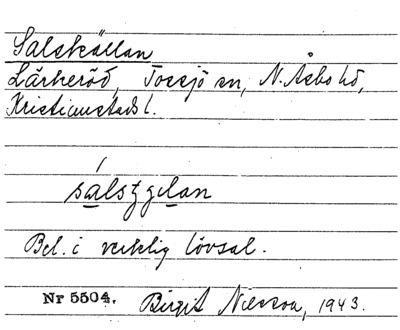 Salskällan
Lärkeröd, Tossjö sn, N. Åsbo hd,
Kristianstads l.
Bel. i verklig lövsal.
Nr 5504. Birgit Nilsson, 1943.